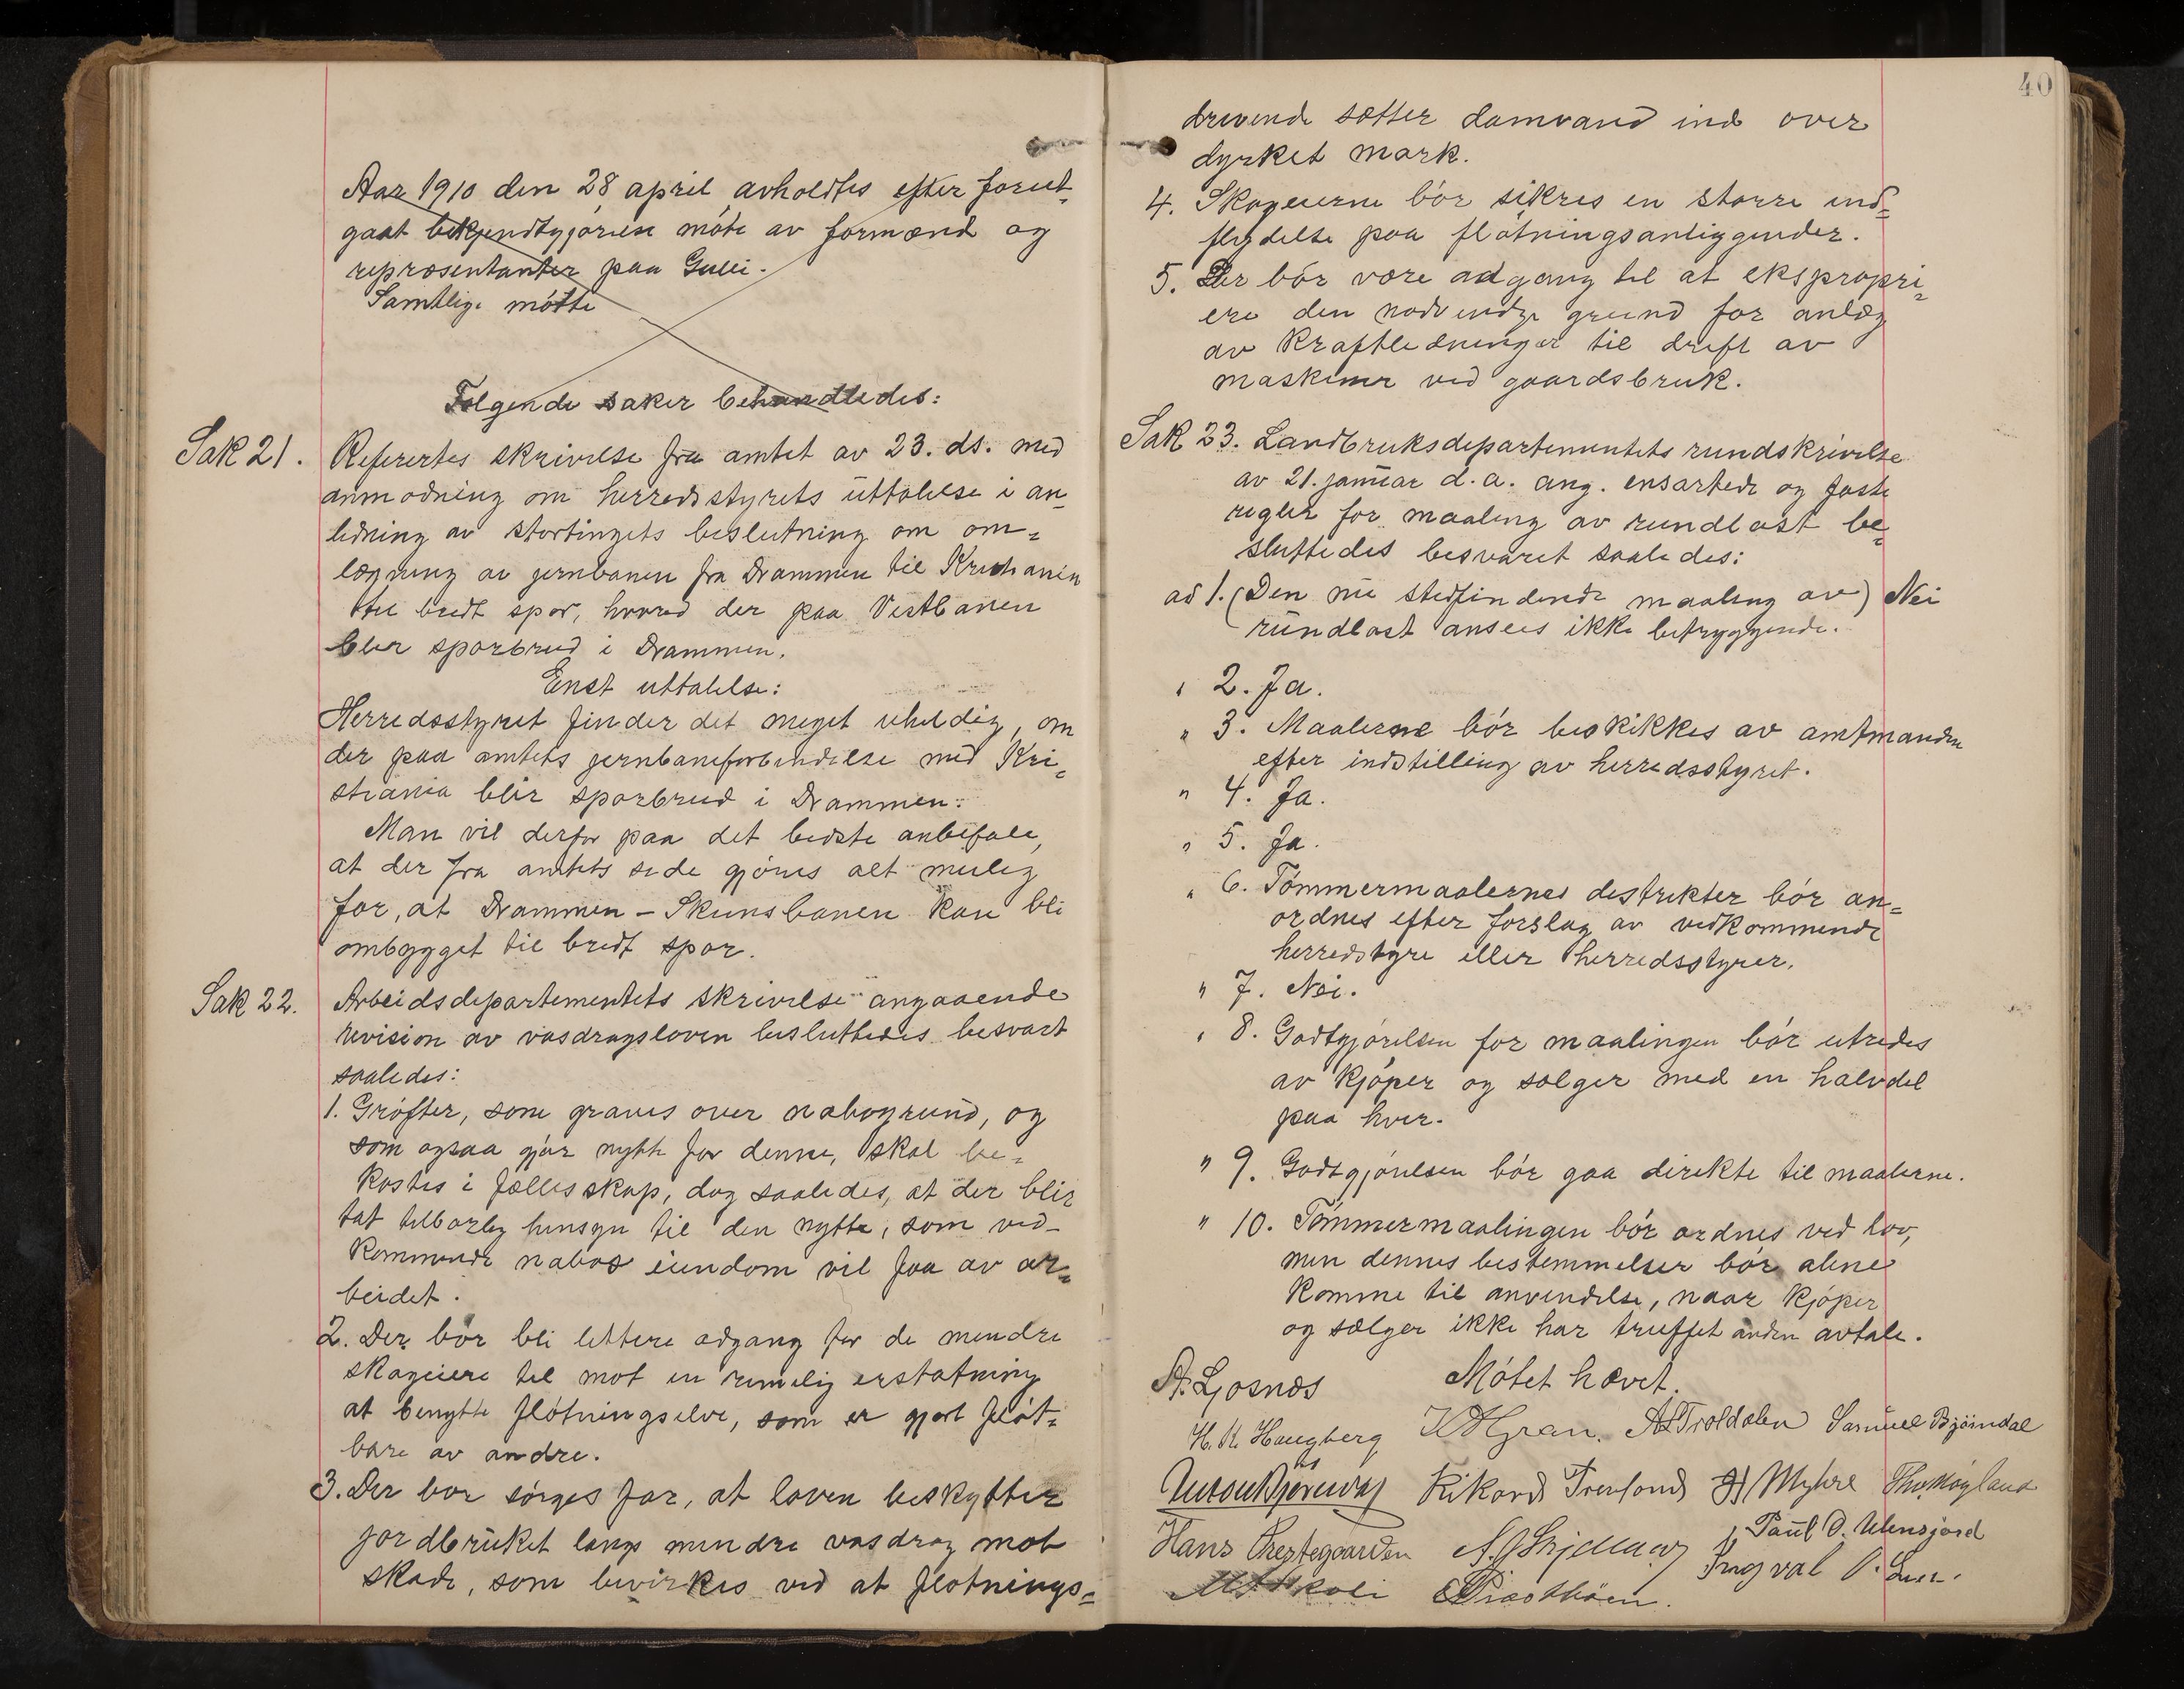 Aar 1910 den 28 april avholdtes efter forut-
gaat bekjendtgjørelse møte av formænd og
repræsentanter paa Gulli.
Samtlige møtte
Følgende saker behandledes:
Sak 21. Referertes skrivelse fra amtet av 23. ds. med
anmodning om herredsstyrets uttalelse i an-
ledning av stortingets beslutning om om-
lægning av jernbanen fra Drammen til Kristiania
til bredt spor, hvored der paa Vestbanen
blir sporbrud i Drammen.
Enst uttalelse:
Herredsstyret finder det meget uheldig, om
der paa amtets jernbaneforbindelse med Kri-
stiania blir sporbrud i Drammen.
Man vil derfor paa det bedste anbefale,
at der fra amtets side gjøres alt mulig
for, at Drammen - Skiensbanen kan bli
ombygget til bredt spor.
Sak 22. Arbeidsdepartementets skrivelse angaaende
revision av vasdragsloven besluttedes besvart
saaledes:
1. Grøfter, som graves over nabogrund, og
som ogsaa gjør nytte for denne, skal be-
kostes i fællesskap, dog saaledes, at der blir
tat tilbørlig hensyn til den nytte, som ved-
kommende nabos eiendom vil faa av ar-
beidet.
2. Der bør bli lettere adgang for de mindre
skogeiere til mot en rimelig erstatning
at benytte fløtningselve, som er gjort fløt-
bare av andre.
3. Der bør sørges for, at loven beskytter
jordbruket langs mindre vasdrag mot
skade, som bevirkes ved at fløtnings-
40
drivende sætter damvand ind over
dyrket mark.
4. Skogeierne bør sikres en større ind-
flydelse paa fløtningsanliggender.
5. Der bør være adgang til at ekspropri-
ere den nødvendige grund for anlæg
av kraftledninger til drift av
maskiner ved gaardsbruk.
Sak 23. Landbruksdepartementets rundskrivelse
av 21. januar d.a. ang. ensartede og faste
regler for maaling av rundlast be-
sluttedes besvaret saaledes:
ad 1. (Den nu stedfindende maaling av) Nei
rundlast ansees ikke betryggende.
" 2. Ja.
" 3. Maalerne bør beskikkes av amtmanden
efter indstilling av herredsstyret.
" 4. Ja.
" 5. Ja.
" 6. Tømmermaalernes destrikter bør an-
ordnes efter forslag av vedkommende
herredstyre eller herredsstyrer.
" 7. Nei.
" 8. Godtgjørelsen for maalingen bør utredes
av kjøper og sælger med en halvdel
paa hver.
" 9. Godtgjørelsen bør gaa direkte til maalerne.
" 10. Tømmermaalingen bør ordnes ved lov,
men dennes bestemmelser bør alene
komme til anvendelse, naar kjøper
og sælger ikke har truffet anden avtale.
A. Ljosnæs Møtet hævet.
H. K. Haugberg Gran. Troldalen Samuel Bjørndal
Rikard Myhre
Hans Præstegaarden Paul O. Ulensjord
Skoli Ingval